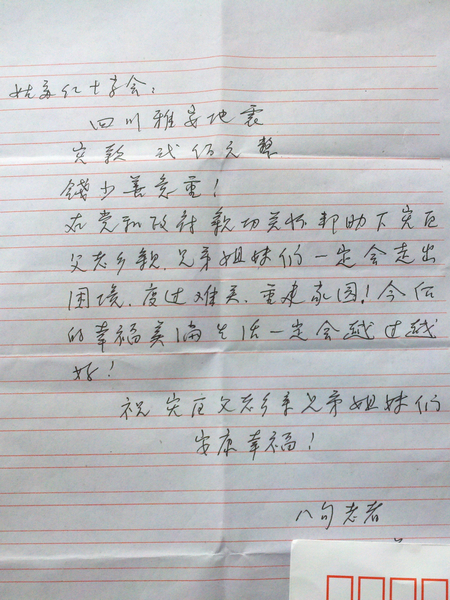 姑苏红十字会：
四川雅安地震
灾款 贰佰元整
钱少善意重！
在党和政府亲切关怀帮助下灾区
父老乡親．兄弟姐妹们一定会走出
困境．度过难关．重建家园！今后
的幸福美满生活一定会越过越
好！
祝灾区父老乡亲兄弟姐妹们
安康幸福！
八旬老者